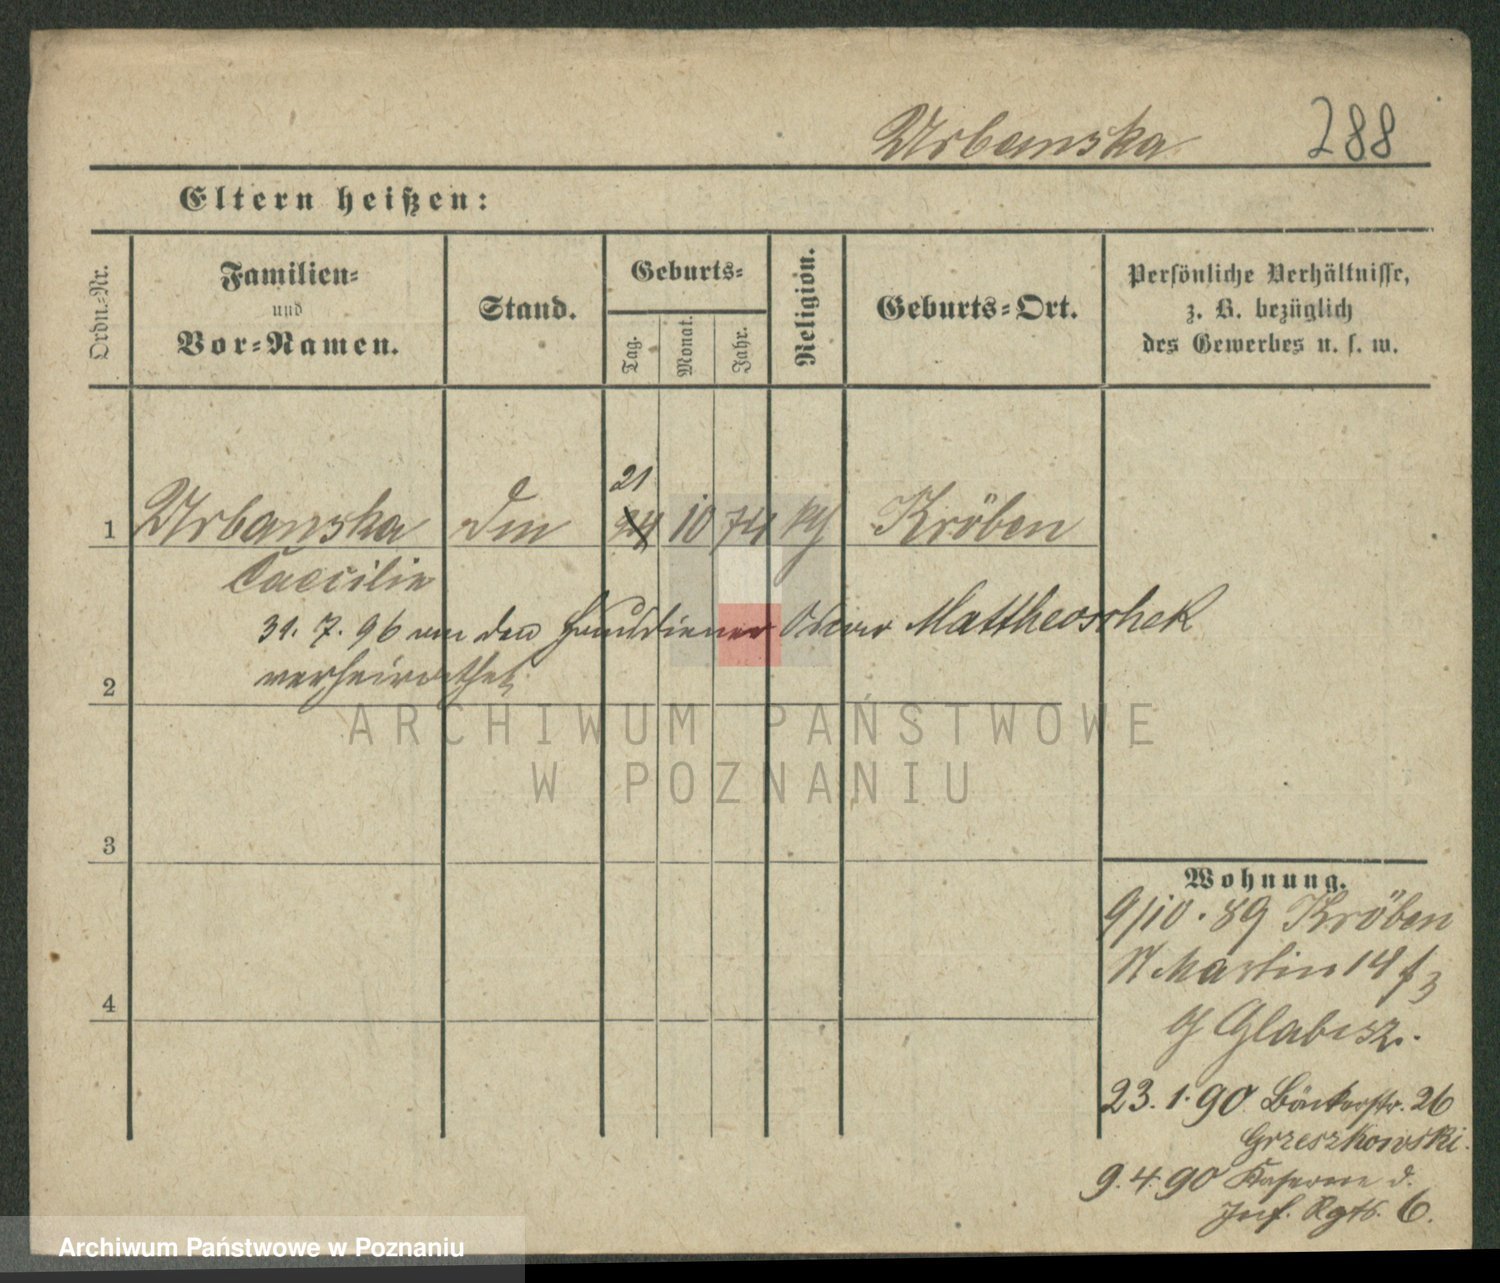 Urbanska 288
Eltern heißen:
Ordn.-Nr.
Familien-
und
Vor-Namen.
Stand.
Geburts-
Tag.
Monat.
Jahr.
Religion.
Geburts-Ort.
Persönliche Verhältnisse,
z. B. bezüglich
des Gewerbes u. s. w.
21
1 Urbanska 24 10 74 Kröben
Caecilie
31. 7. 96 den Hausdiener Oskar Mattheoschek
verheirathet.
2
ARCHIWUM PAŃSTWOWE
W POZNANIU
3
4
Wohnung.
9/10. 89 Kröben
St Martin 14
Glabisz.
23. 1. 90 Bäckerstr. 26
Grzeszkowski.
9. 4. 90 Kaserne d.
Inf. Rgts. 6.
Archiwum Państwowe w Poznaniu